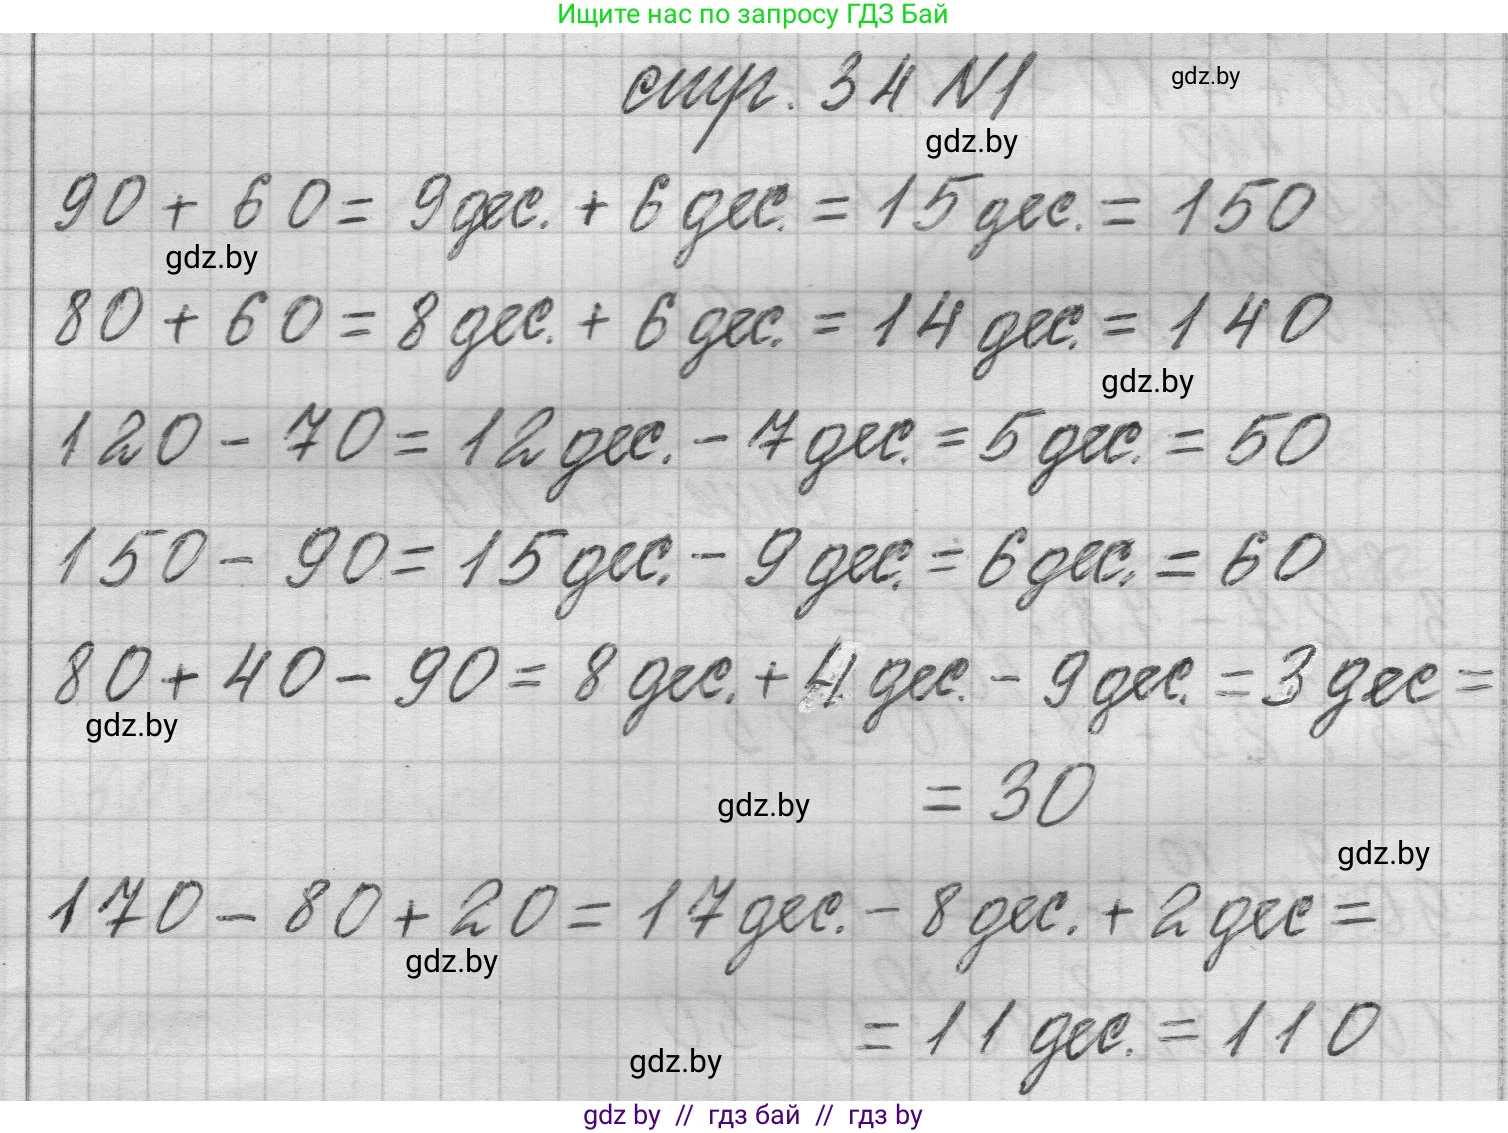 Ищите нас по запросу ГДЗ Бай
стр. 34 №1
gdz.by
gdz.by
90 + 60 = 9 дес. + 6 дес. = 15 дес. = 150
gdz.by
80 + 60 = 8 дес. + 6 дес. = 14 дес. = 140
gdz.by
120 - 70 = 12 дес. - 7 дес. = 5 дес. = 50
150 - 90 = 15 дес. - 9 дес. = 6 дес. = 60
80 + 40 - 90 = 8 дес. + 4 дес. - 9 дес. = 3 дес =
gdz.by
= 30
gdz.by
gdz.by
170 - 80 + 20 = 17 дес. - 8 дес. + 2 дес =
gdz.by
= 11 дес. = 110
gdz.by
gdz by // гдз бай // гдз by